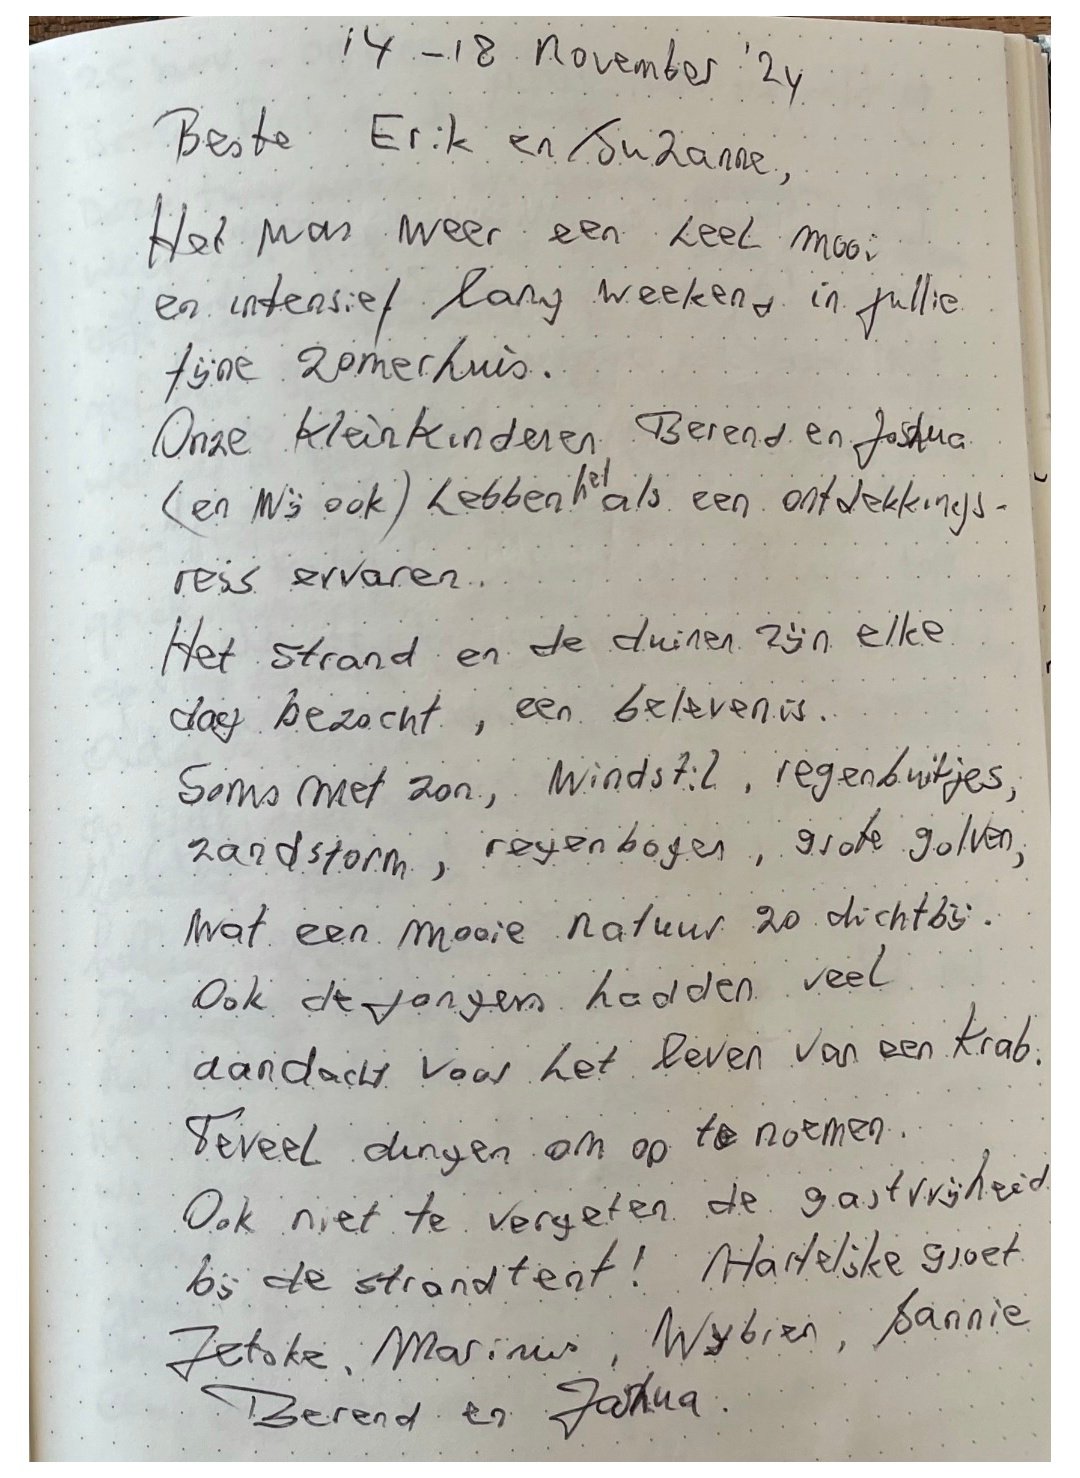 14 - 18 november '24
Beste Erik en Suzanne,
Het was weer een heel mooi
en intensief lang weekend in jullie
fijne zomerhuis.
Onze kleinkinderen Berend en Joshua
(en wij ook) hebben het als een ontdekkings-
reis ervaren.
Het strand en de duinen zijn elke
dag bezocht, een belevenis.
Soms met zon, windstil, regenbuitjes,
zandstorm, regenbogen, grote golven,
wat een mooie natuur zo dichtbij.
Ook de jongens hadden veel
aandacht voor het leven van een krab.
Teveel dingen om op te noemen.
Ook niet te vergeten de gastvrijheid
bij de strandtent! Hartelijke groet
Marinus, Wybien, Sannie
Berend en Joshua.